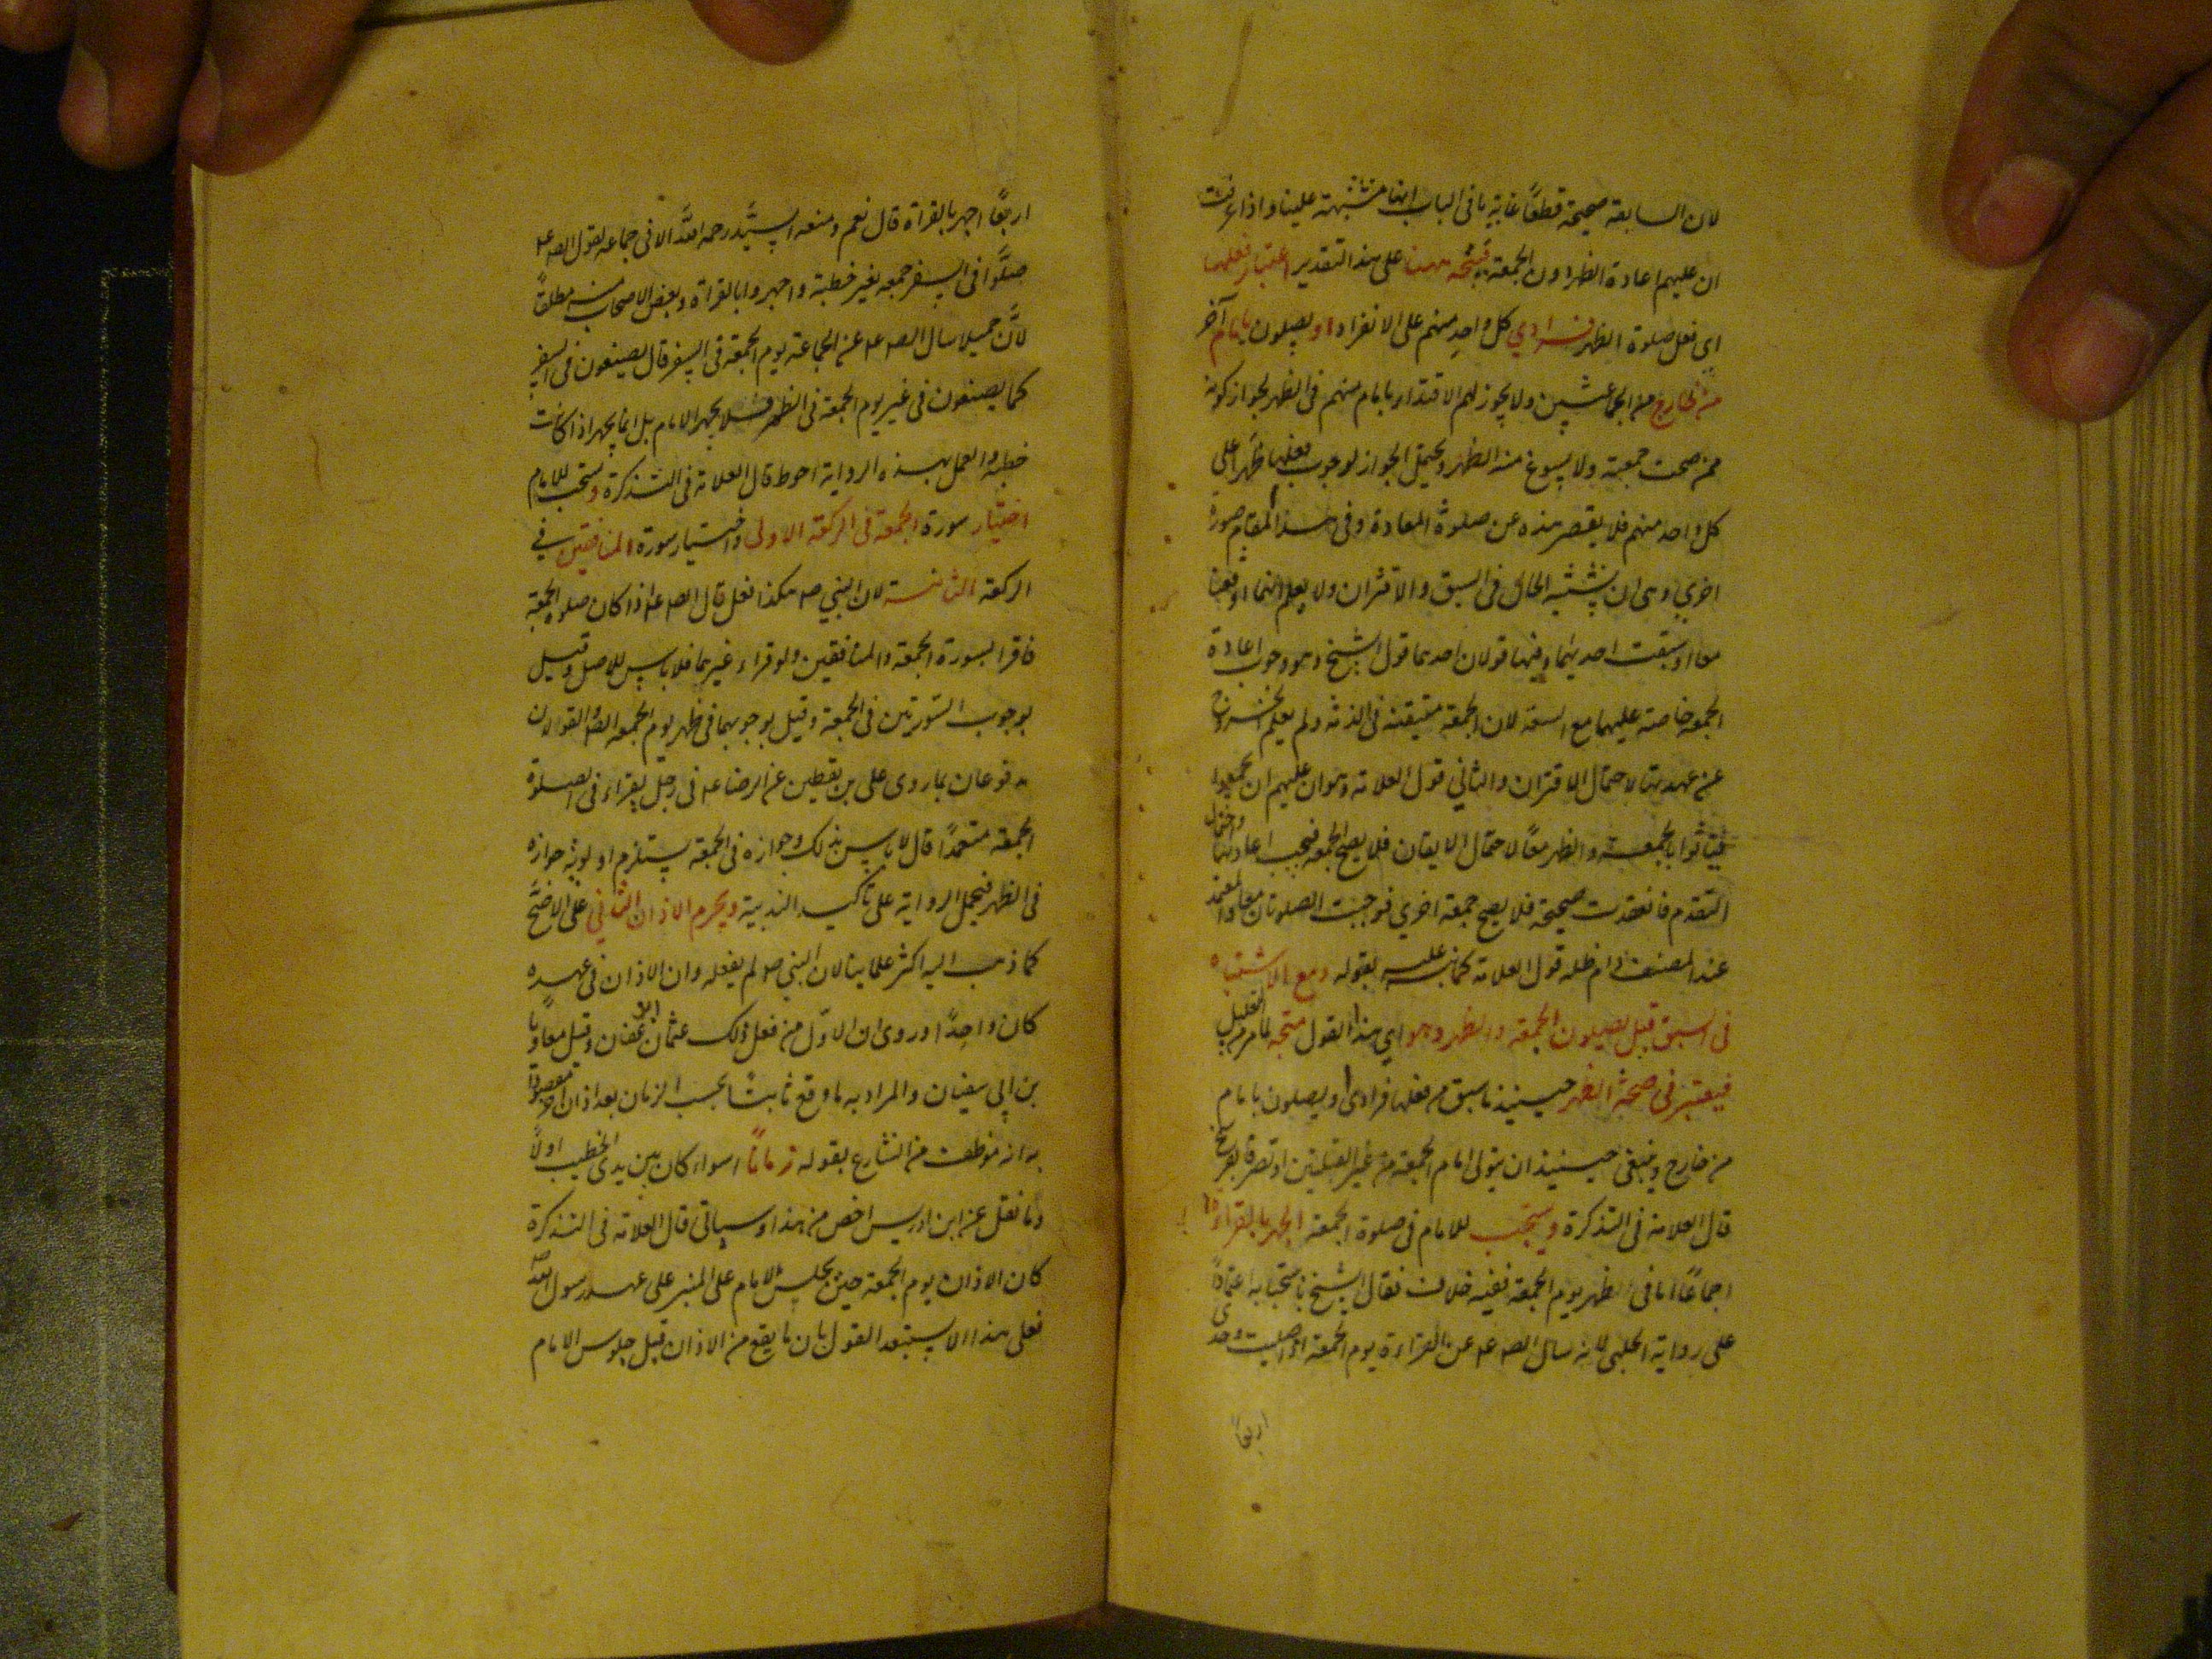 لان السابقة صحيحة قطعاً غاية ما فى الباب انها مشتبهة علينا و اذا عرفت
ان عليهم اعادة الظهر دون الجمعة فيتجه ههنا على هذا التقدير اعتبار فعلها
اى فعل صلوة الظهر فرادي كل واحد منهم على الانفراد او يصلون بامام آخر
من خارج من الجماعتين ولا يجوز لهم الاقتداء بامام منهم فى الظهر لجواز كونه
ممن صحت جمعته ولا يسوغ منه الظهر ويحتمل الجواز لوجوب فعلها ظهراً على
كل واحد منهم فلا يقصر هذه عن صلوة المعادة وفى هذا المقام صورة
اخري وهى ان يشتبه الحال فى السبق والاقتران ولا يعلم انهما اوقعتا
معا او سبقت احديهما وفيها قولان احدهما قول الشيخ وهو وجوب اعادة
الجمعة خاصة عليهما مع السعة لان الجمعة متيقنة فى الذمة ولم يعلم الخروج
عن عهدتها لاحتمال الاقتران والثاني قول العلامة وهو ان عليهم ان يجمعوا
فياتوا بالجمعة والظهر معاً لاحتمال فلا يصح الجمعة فيجب اعادتها واحتمال
التقدم فانعقدت صحيحة فلا يصح جمعة اخري فوجبت الصلوتان معا والمعتمد
عند المصنف دام ظله قول العلامة كما نبه عليه بقوله ومع الاشتباه
فى السبق قيل يصلون الجمعة والظهر وهو اي هذا القول متجه لما مر من التعليل
فيعتبر فى صحة الظهر حينئذ ما سبق من فعلها فرادى او يصلون بامام
من خارج وينبغى حينئذ ان يتولى امام الجمعة من غير القبيلتين او تفرقا بفرسخ
قال العلامة فى التذكرة ويستحب للامام فى صلوة الجمعة الجهر بالقراءة
اجماعًا اما فى الظهر يوم الجمعة ففيه خلاف فقال الشيخ باستحبابه اعتمادًا
على رواية الحلبى لانه سال الصـ ع عن القراءة يوم الجمعة اذا صليت وحدى
اربعًا
اربعًا اجهر بالقراة قال نعم ومنعه السيد رحمه الله الا فى جماعة لقول الصـ ع
صلوا فى السفر جمعة بغير خطبة واجهروا بالقراة وبعض الاصحاب منعه مطلقاً
لان جميلا سال الصـ ع عن الجماعة يوم الجمعة فى السفر قال يصنعون فى السفر
كما يصنعون فى غير يوم الجمعة فى الظهر فلا يجهر الامام بل انما يجهر اذا كانت
خطبة والعمل بهذه الرواية احوط قال العلامة فى التذكرة ويستحب للامام
اختيار سورة الجمعة فى الركعة الاولى واختيار سورة المنافقين فى
الركعة الثانية لان النبي ص هكذا فعل قال الصـ ع اذا كان صلوة الجمعة
فاقرا بسورة الجمعة والمنافقين ولو قراء غيرهما فلا باس للاصل وقيل
بوجوب السورتين فى الجمعة وقيل بوجوبهما فى ظهر يوم الجمعة والقولان
مدفوعان بما روى على بن يقطين عن الرضا ع فى رجل يقراء فى الصلوة
الجمعة متعمدًا قال لا باس بذلك وجوازه فى الجمعة يستلزم اولوية جوازه
فى الظهر فيحمل الرواية على تاكيد الندبية ويحرم الاذان الثاني على الاصح
كما ذهب اليه اكثر علمائنا لان النبي ص لم يفعله وان الاذان فى عهده
كان واحدًا وروى ان الاول من فعل ذلك عثمان عفان وقيل معاوية
بن ابى سفيان والمراد به ما وقع ثابتًا بحسب الزمان بعد اذان آخر مقصودًا
به انه موظف من الشارع بقوله زمانا سواء كان بين يدى الخطيب اولاً
وما نقل عن ابن ادريس اخص من هذا وسياتى قال العلامة فى التذكرة
كان الاذان يوم الجمعة حين يجلس الامام على المنبر على عهد رسول الله ص
فعلى هذا لا يستبعد القول بان ما يقع من الاذان قبل جلوس الامام